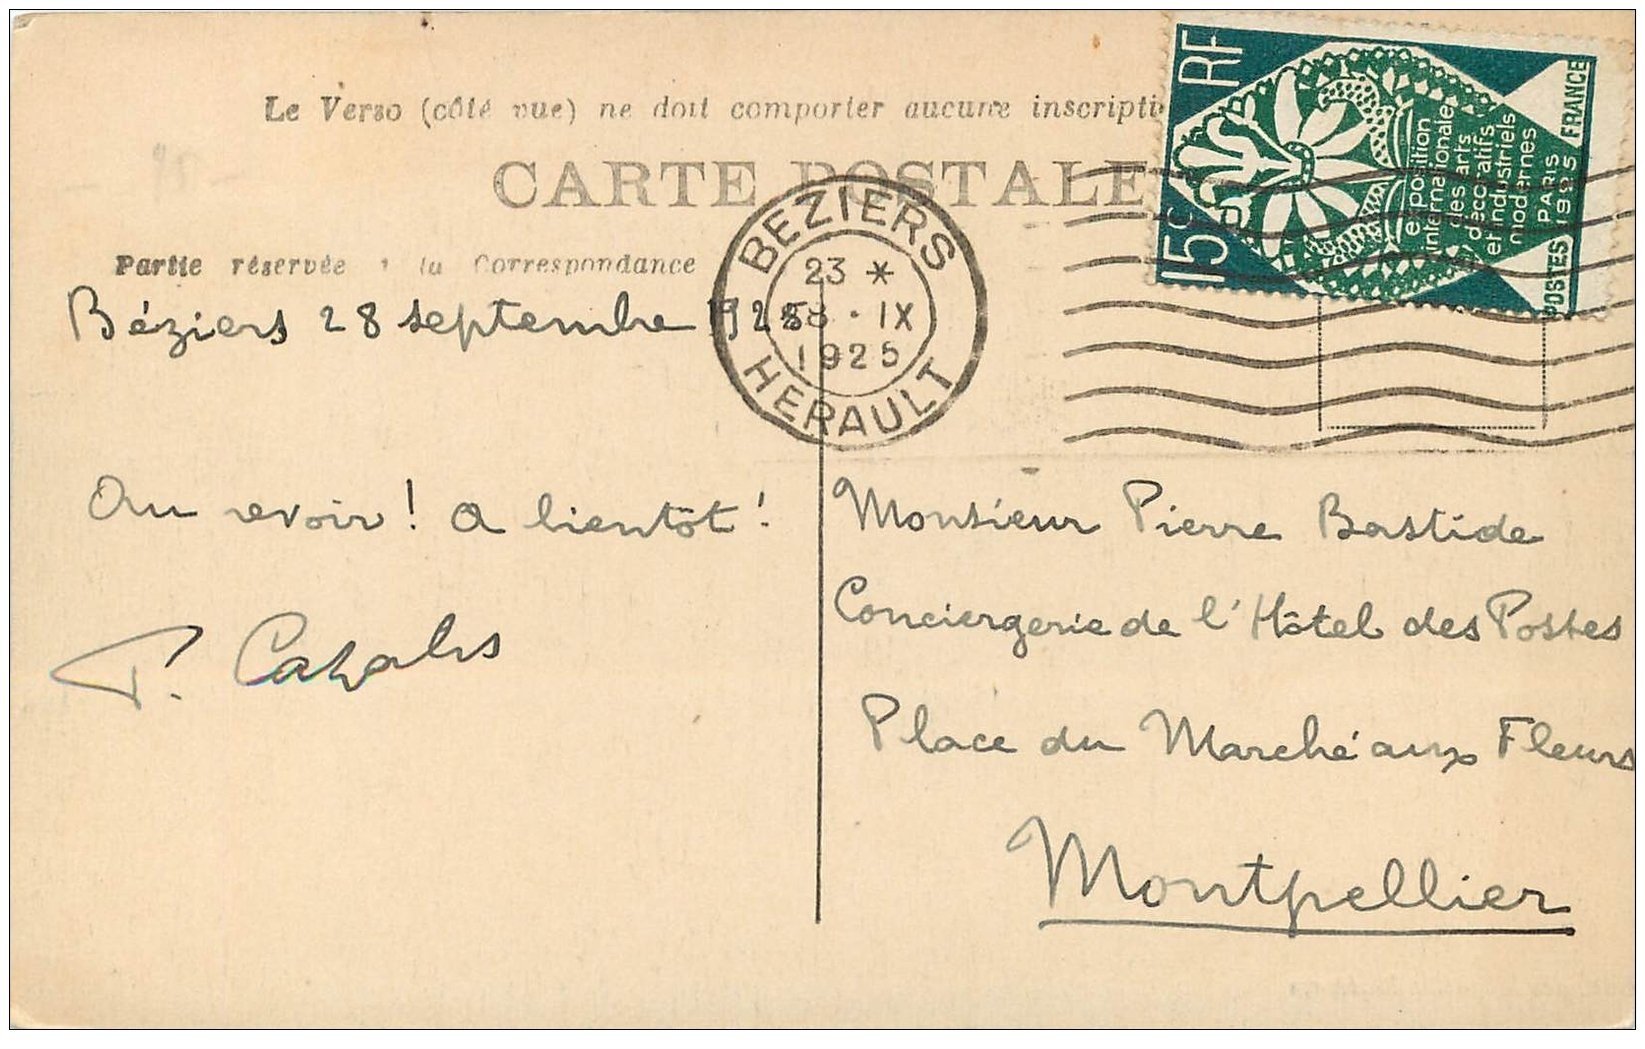 Le Verso (côté vue) ne doit comporter aucune inscripti
CARTE POSTALE
Partie réservée à la Correspondance
BEZIERS
23 *
IX
1925
HERAULT
RF
15c
exposition
internationale
des arts
décoratifs
et industriels
modernes
PARIS
1925
POSTES FRANCE
Béziers 28 septembre 1925
Au revoir ! A bientôt !
P. Cazals
Monsieur Pierre Bastide
Conciergerie de l'Hôtel des Postes
Place du Marché aux Fleurs
Montpellier